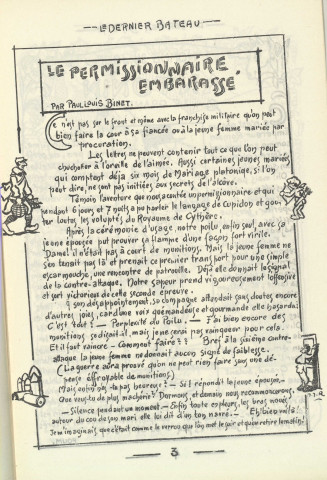 LE DERNIER BATEAU
LE PERMISSIONNAIRE
EMBARASSE.
PAR PAUL LOUIS BINET.
Ce n'est pas sur le front et même avec la franchise militaire qu'on peut
bien faire la cour à sa fiancée ou à la jeune femme mariée par
procuration.
Les lettres ne peuvent contenir tout ce que l'on peut
chuchoter à l'oreille de l'aimée. Aussi certaines jeunes mariées,
qui comptent déjà six mois de Mariage platonique, si l'on
peut dire, ne sont pas initiées aux secrets de l'alcôve.
Témoin l'aventure que nous a conté un permissionnaire et qui
pendant 6 jours et 7 nuits a pu parler le langage de Cupidon et goû-
ter toutes les voluptés du Royaume de Cythère.
Après la cérémonie d'usage, notre poilu, enfin seul, avec sa
jeune épousée put prouver sa flamme d'une façon fort virile.
Dame! il n'était pas à court de munitions. Mais la jeune femme ne
s'en tenait pas là et prenait ce premier transport pour une simple
escarmouche, une rencontre de patrouille. Déjà elle donnait le signal
de la contre-attaque. Notre sapeur prend vigoureusement l'offensive
et sort victorieux de cette seconde épreuve.
A son désappointement, sa compagne attendait sans doutes encore
d'autres joies, car d'une voix quemandeuse et gourmande elle hasarda:
C'est tout? — Perplexité du Poilu — J'ai bien encore des
munitions se disait-il, mais je ne serai pas vainqueur pour cela.
Et il faut vaincre — Comment faire?? Bref à la sixième contre-
attaque la jeune femme ne donnait aucun signe de faiblesse.
(La guerre aura prouvé qu'on ne peut rien faire sans une dé-
pense effroyable de munitions)
Mais, enfin, n'es-tu pas heureuse? — Si! répondit la jeune épouse —
Que veux-tu de plus ma chérie? Dormons, et demain nous recommencerons.
— Silence pendant un moment — Enfin toute
autour du cou de son mari elle lui dit d'un ton navré. — Eh! bien voilà!
Je m'imaginais que c'était comme le verrou que l'on met le soir et qu'on retire le matin!
3